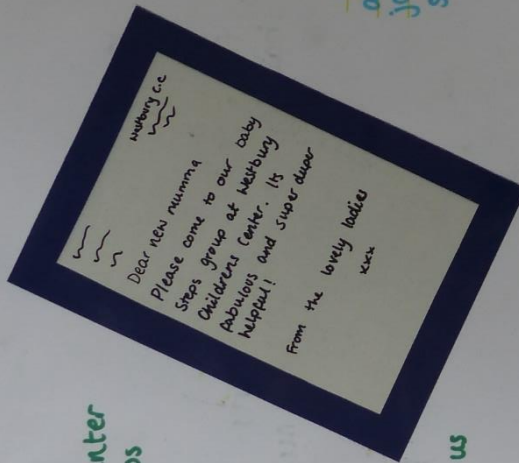 Westbury C.C
Dear new mumma
Please come to our baby
Steps group at Westbury
Childrens Center. Its
fabulous and super duper
helpful!
From the lovely ladies
xxx
us